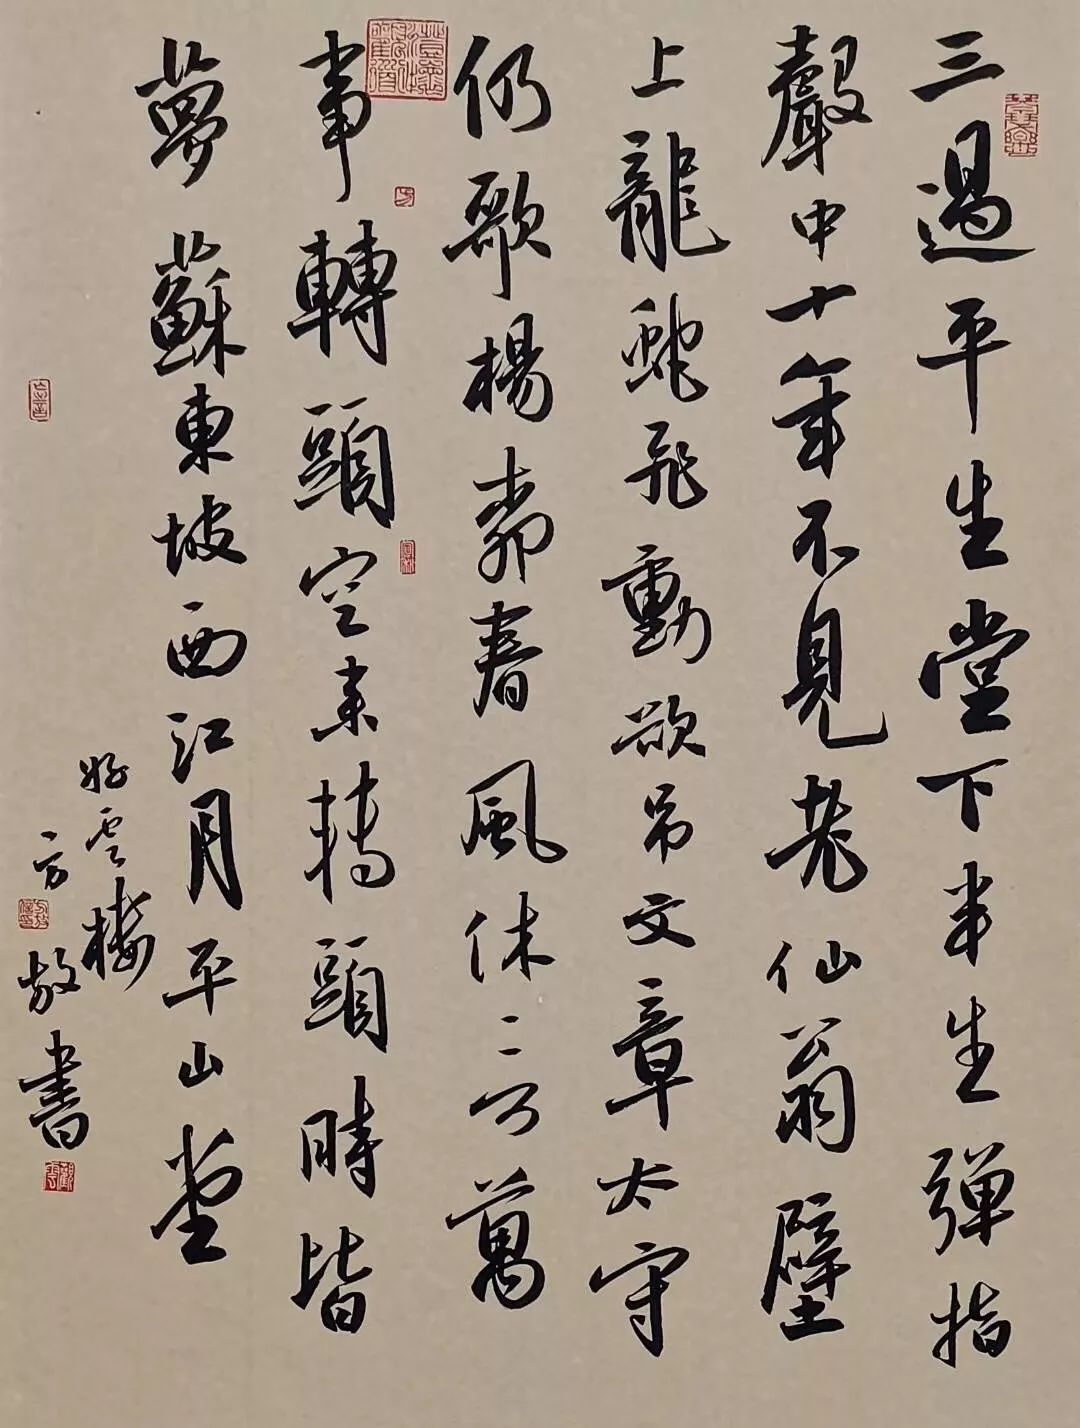 三過平生堂下半生弹指
聲中十年不見老仙翁壁
上龍蛇飛動欲吊文章太守
仍歌楊柳春風休言萬
事轉頭空未轉頭時皆
夢蘇東坡西江月平山堂
好雲樓
方敬書